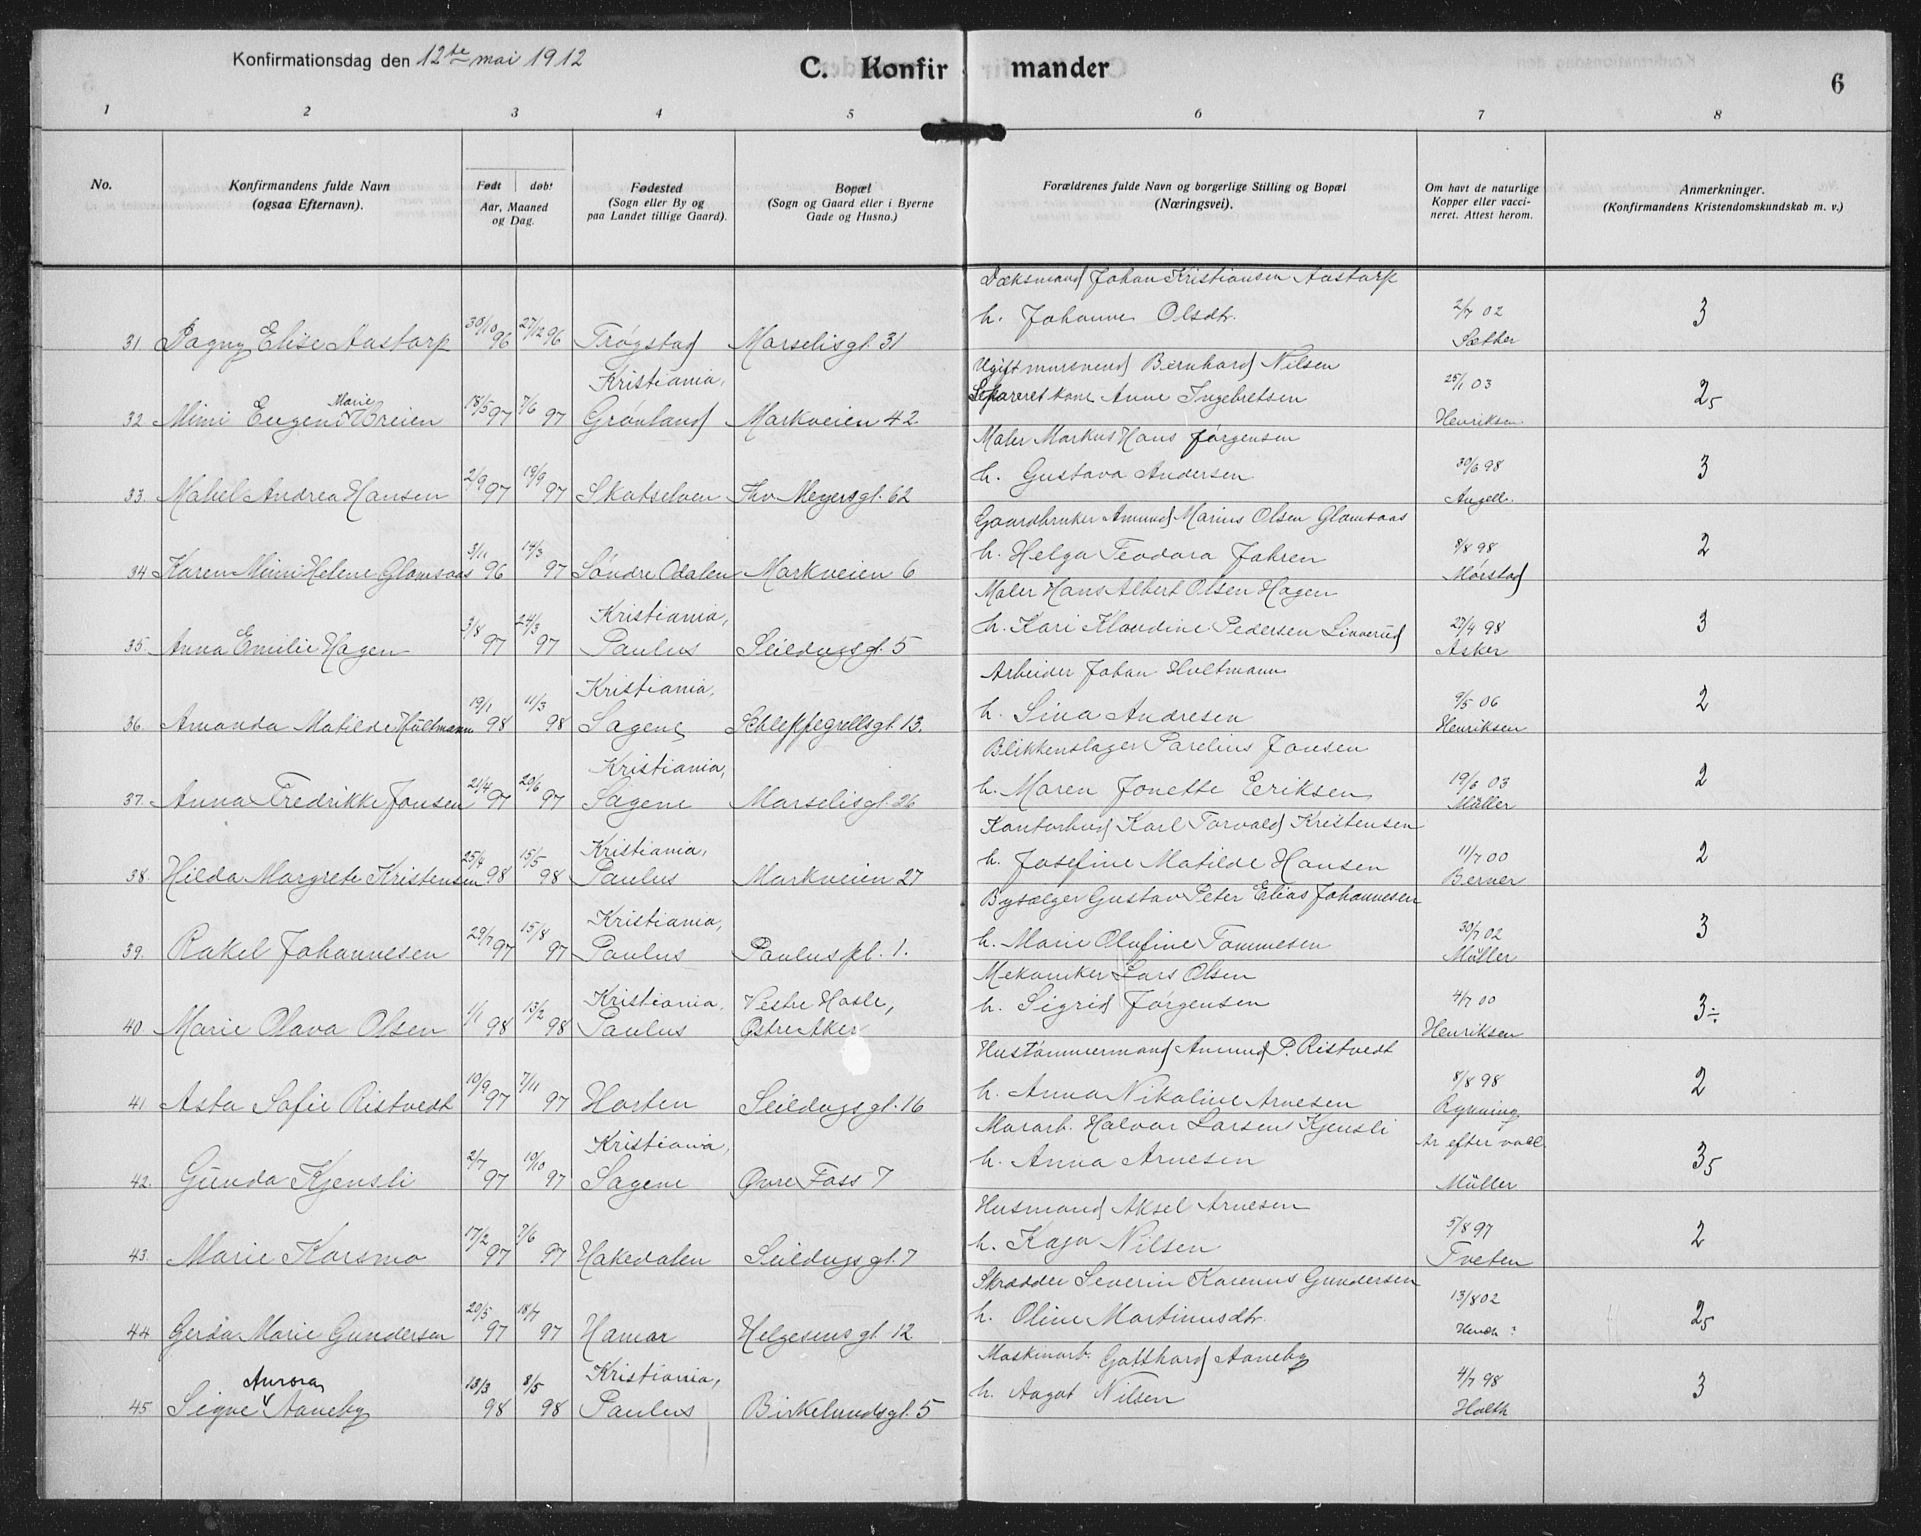 Konfirmationsdag den 12te mai 1912
C. Konfirmander
6
1 2 3 4 5 6 7 8
No.
Konfirmandens fulde Navn
(ogsaa Efternavn).
Født døbt
Aar, Maaned
og Dag.
Fødested
(Sogn eller By og
paa Landet tillige Gaard).
Bopæl
(Sogn og Gaard eller i Byerne
Gade og Husno.)
Forældrenes fulde Navn og borgerlige Stilling og Bopæl
(Næringsvei).
Om havt de naturlige
Kopper eller vacci-
neret. Attest herom.
Anmerkninger.
(Konfirmandens Kristendomskundskab m. v.)
Dæksmand Johan Kristiansen Aastorp
h. Johanne Olsdtr. 2/7 02 3
31 Dagny Elise Aastorp 30/10 96 27/12 96 Trøgstad Marselisgt. 31 Sæther
Ugift mursvend Bernhard Nilsen
Kristiania, Separeret kone Anne Ingebretsen 25/1 03 25
Marie
32 Mimi Eugeni Breien 18/5 97 7/6 97 Grønland Markveien 42 Henriksen
Maler Markus Hans Jørgensen
h. Gustava Andersen 30/6 98 3
33. Mabel Andrea Hansen 2/9 97 19/9 97 Skotselven Thv Meyersgt. 62 Angell.
Gaardbruker Amund Marius Olsen Glomsaas
h. Helga Teodora Jahren 8/8 98 2
34 Karen Mimi Helene Glomsaas 3/11 96 14/3 97 Søndre Odalen Markveien 6 Mørstad
Maler Hans Albert Olsen Hagen
Kristiania, h. Kari Klaudine Pedersen Linnerud 27/4 98 3
35. Anna Emilie Hagen 3/8 97 24/3 97 Paulus Seildugsgt. 5 Asker
Arbeider Johan Hultmann
Kristiania, h. Lina Andresen 9/5 06 2
36. Amanda Matilde Hultmann 19/1 98 11/3 98 Sagene Schleppegrellsgt. 13. Henriksen
Blikkenslager Parelius Jonsen
Kristiania, h. Maren Jonette Eriksen 19/6 03 2
37. Anna Fredrikke Jonsen 21/4 97 20/6 97 Sagene Marselisgt. 26 Müller
Kontorbud Karl Torvald Kristensen
Kristiania, h. Josefine Matilde Hansen 11/7 00 2
38. Hilda Margrete Kristensen 25/4 98 15/5 98 Paulus Markveien 27 Berner
Bysælger Gustav Peter Elias Johannesen
Kristiania, h. Marie Olufine Tommesen 30/7 02 3
39. Rakel Johannesen 29/7 97 15/8 97 Paulus Pauluspl. 1. Müller
Mekaniker Lars Olsen
Kristiania, Vestre Hasle, h. Sigrid Jørgensen 4/7 00 3÷
40. Marie Olava Olsen 1/1 98 13/2 98 Paulus Østre Aker Henriksen
Hustømmermand Amund P. Ristvedt
h. Anna Nikoline Arnesen 8/8 98 2
41 Asta Sofie Ristvedt 10/9 97 7/11 97 Horten Seildugsgt. 16 Ryning
Murarb. Halvor Larsen Kjensli
Kristiania, h. Anna Arnesen Ar efter vacc. 35
42. Gunda Kjensli 2/7 97 10/10 97 Sagene Øvre Foss 7 Müller
Husmand Aksel Arnesen
h. Kaja Nilsen 5/8 97 2
43. Marie Korsmo 17/2 97 7/6 97 Hakedalen Seildugsgt. 7 Tveten
Skrædder Severin Karenus Gundersen
h. Oline Martinusdtr. 13/8 02 25
44 Gerda Marie Gundersen 20/5 97 18/7 97 Hamar Helgesensgt 12
Maskinarb. Gotthard Aaneby
Kristiania, h. Aagot Nilsen 4/7 98 3
Aurora
45. Signe Aaneby 13/3 98 8/5 98 Paulus Birkelundsgt. 5 Holth